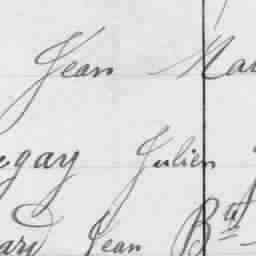 Jean Mar
gay Julien
ard Jean Bte